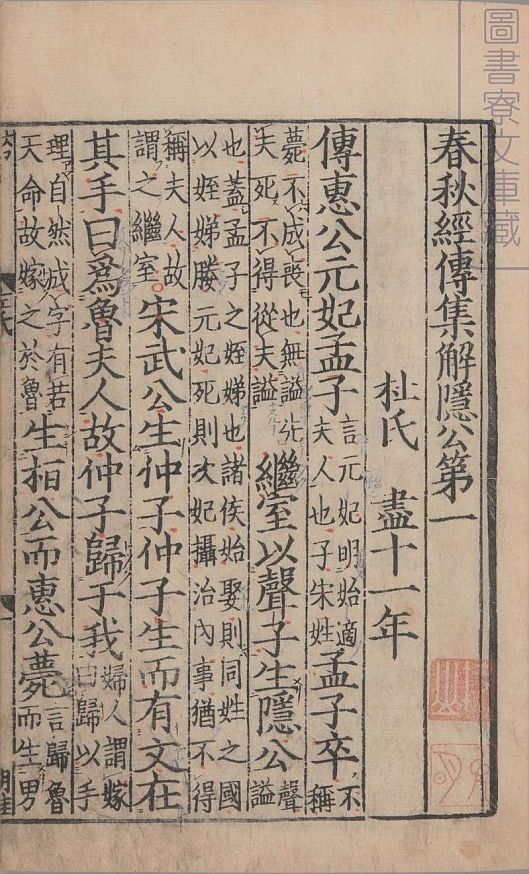 圖書寮文庫藏
春秋經傳集解隱公第一
杜氏 盡十一年
傳惠公元妃孟子言元妃明始適夫人也子宋姓孟子卒不稱
薨不成喪也無謚先夫死不得從夫謚繼室以聲子生隱公聲謚
也蓋孟子之姪娣也諸侯始娶則同姓之國以姪娣媵元妃死則次妃攝治內事猶不得
稱夫人故謂之繼室宋武公生仲子仲子生而有文在
其手曰爲魯夫人故仲子歸于我婦人謂嫁曰歸以手
理自然成字有若天命故嫁之於魯生桓公而惠公薨言歸魯而生男